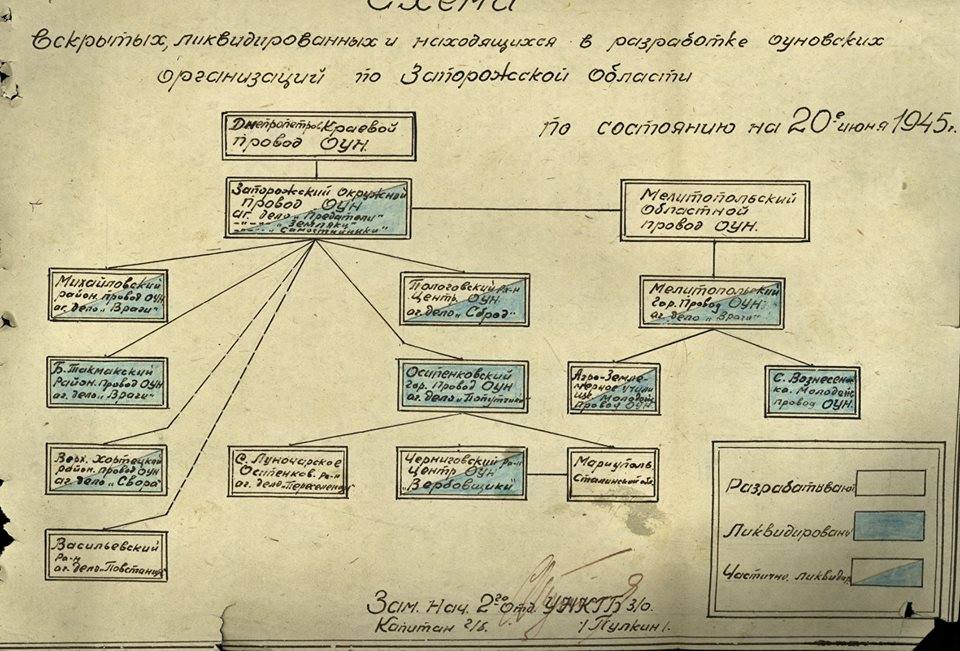 Схема
вскрытых, ликвидированных и находящихся в разработке оуновских
организаций по Запорожской области
по состоянию на 20е июня 1945г.
Днепропетров Краевой
провод ОУН.
Запорожский окружной
провод ОУН
аг. дело „Предатели"
-"- -"- „Земляки"
-"- -"- „Самостийники"
Мелитопольский
областной
провод ОУН.
Михайловский
район. провод ОУН
аг. дело „Враги"
Пологовский Ра-н
Центр ОУН
аг. дело „Сброд"
Мелитопольский
гор. Провод ОУН
аг. дело „Враги"
Б. Такмакский
Район. провод ОУН
аг. дело „Враги"
Осипенковский
гор. Провод ОУН
аг. дело „Попутчики"
Агро-Земле-
мерное учили
ще Молодеж
провод ОУН
С. Вознесен
ка. Молодеж
провод ОУН.
Верх. Хортецкий
район. провод ОУН
аг. дело „Свора"
С. Луночарское
Осипенков. Ра-н
аг. дело
Черниговский Ра-н
Центр ОУН
"Вербовщики"
Мариуполь
Сталинской обл.
Васильевский
Ра-н
аг. дело „Повстанцы"
Разрабатывают
Ликвидирован
Частично ликвидир
Зам. Нач. 2го отд. УНКГБ З/О.
Капитан г/б. /Пулкин/.